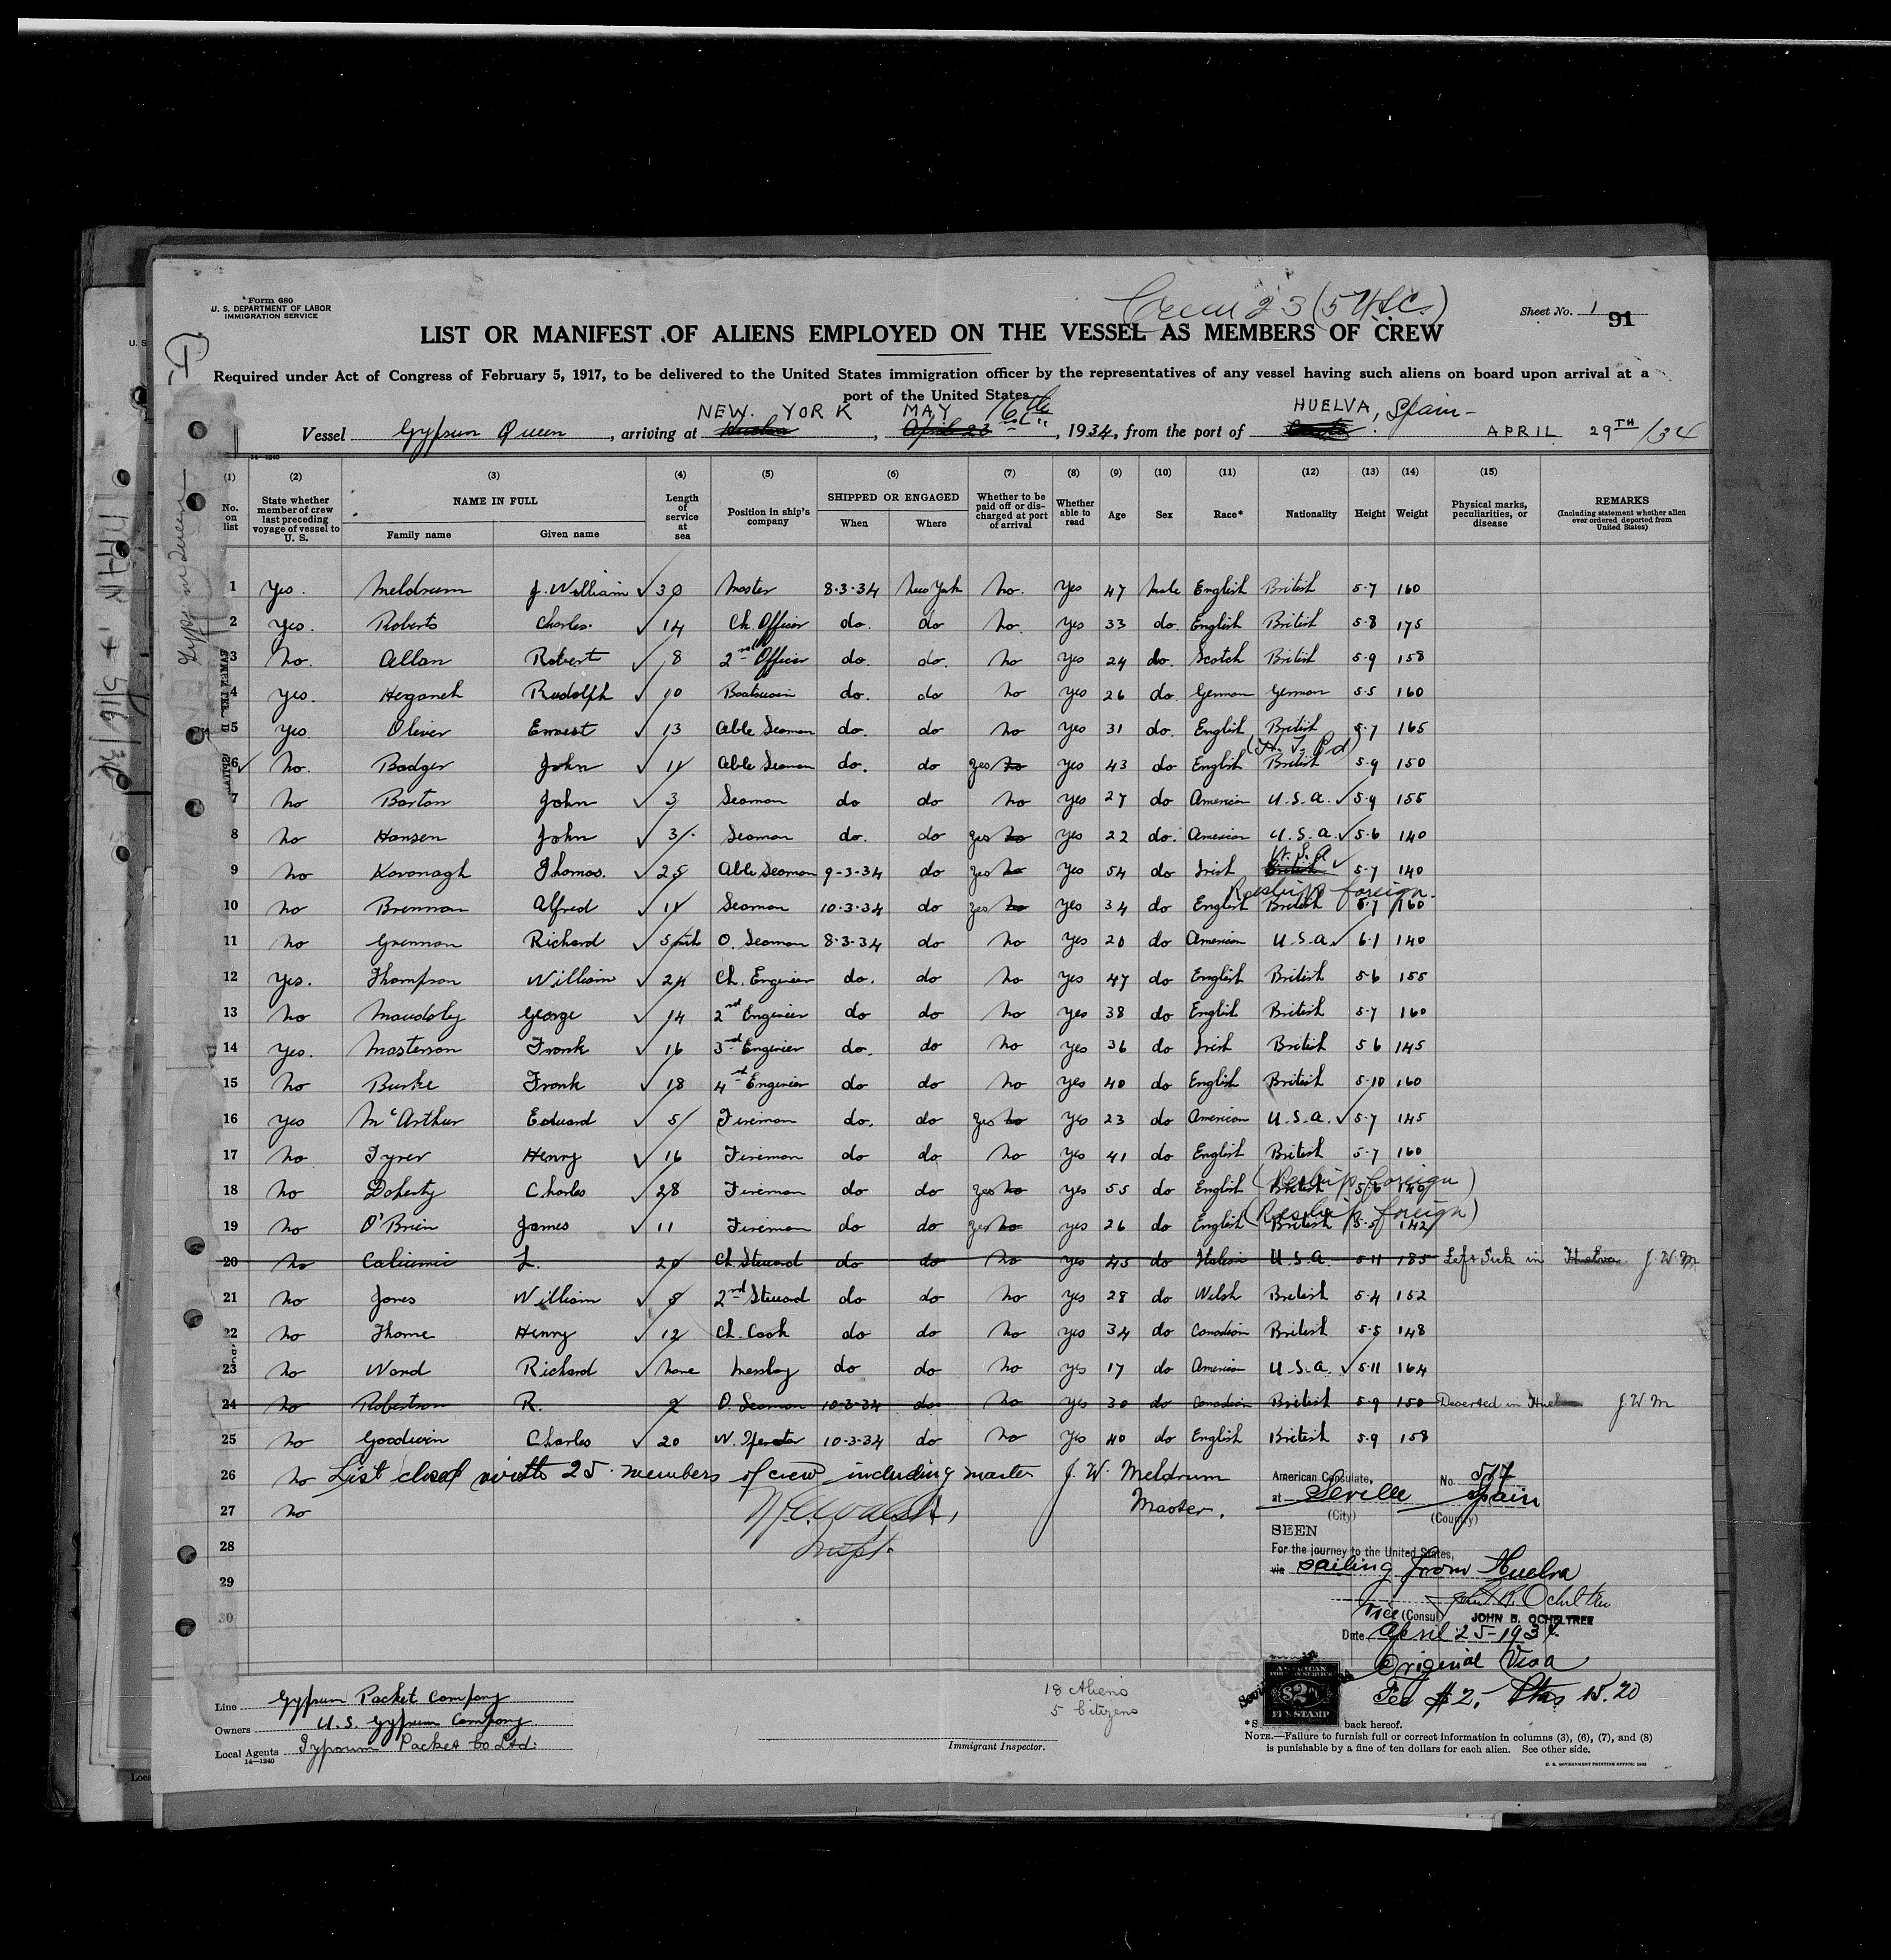 Form 680
U. S. DEPARTMENT OF LABOR
IMMIGRATION SERVICE
Crew 23 (5 U.S.C.)
Sheet No. 1
91
LIST OR MANIFEST OF ALIENS EMPLOYED ON THE VESSEL AS MEMBERS OF CREW
Required under Act of Congress of February 5, 1917, to be delivered to the United States immigration officer by the representatives of any vessel having such aliens on board upon arrival at a
port of the United States
NEW YORK MAY 16th HUELVA, Spain-
Vessel Gypsum Queen, arriving at Huelva, April 23, 1934, from the port of APRIL 29TH/34
14-1240
(1) (2) (3) (4) (5) (6) (7) (8) (9) (10) (11) (12) (13) (14) (15)
No. on list State whether member of crew last preceding voyage of vessel to U. S. NAME IN FULL Family name Given name Length of service at sea Position in ship's company SHIPPED OR ENGAGED When Where Whether to be paid off or discharged at port of arrival Whether able to read Age Sex Race* Nationality Height Weight Physical marks, peculiarities, or disease REMARKS (Including statement whether alien ever ordered deported from United States)
1 Yes. Meldrum J. William 30 Master 8-3-34 New York No. Yes 47 Male English British 5-7 160
2 Yes. Roberts Charles. 14 Ch. Officer do. do No. Yes 33 do. English British 5-8 175
3 No. Allan Robert 8 2nd Officer do. do. No Yes 24 do. Scotch British 5-9 158
4 Yes. Heganek Rudolph 10 Boatswain do. do No Yes 26 do. German German 5-5 160
5 Yes. Oliver Ernest 13 Able Seaman do. do No Yes 31 do. English British 5-7 165
(H. T. Pd)
6 No. Badger John 11 Able Seaman do. do Yes No Yes 43 do English British 5-9 150
7 No Barton John 3 Seaman do do No Yes 27 do American U.S.A. 5-9 155
8 No Hansen John 3 Seaman do. do Yes No Yes 22 do. American U.S.A. 5-6 140
U.S.A
9 No Kavanagh Thomas. 25 Able Seaman 9-3-34 do Yes No Yes 54 do Irish British 5-7 140
Reship foreign.
10 No Brennan Alfred 11 Seaman 10-3-34 do Yes No Yes 34 do English British 5-7 160
11 No Grennan Richard 5 mth O. Seaman 8-3-34 do No Yes 20 do American U.S.A. 6-1 140
12 Yes. Thompson William 24 Ch. Engineer do. do No Yes 47 do English British 5-6 155
13 No Maudsley George 14 2nd Engineer do do No Yes 38 do English British 5-7 160
14 Yes. Masterson Frank 16 3rd Engineer do. do No Yes 36 do Irish British 5 6 145
15 No Burke Frank 18 4 Engineer do do No Yes 40 do English British 5-10 160
16 Yes McArthur Edward 5 Fireman do. do Yes No Yes 23 do American U.S.A. 5-7 145
17 No Tyrer Henry 16 Fireman do do No Yes 41 do English British 5-7 160
18 No Doherty Charles 28 Fireman do do Yes No Yes 55 do English British 5-6 140 (Reship foreign)
19 No O'Brien James 11 Fireman do do Yes No Yes 26 do English British 5-5 142 (Reship foreign)
20 No L. 20 Ch. Steward do do No Yes 45 do Italian U.S.A. 5-11 185 Left Sick in Huelva J.W.M
21 No Jones William 8 2nd Steward do do No Yes 28 do Welsh British 5-4 152
22 No Thorne Henry 12 Ch. Cook do do No Yes 34 do Canadian British 5-5 148
23 No Ward Richard None Messboy do do No Yes 17 do American U.S.A. 5-11 164
24 No Robertson R. 2 O. Seaman 10-3-34 do No Yes 30 do Canadian British 5-9 150 Deserted in Huelva J.W.M
25 No Goodwin Charles 20 W. Operator 10-3-34 do No Yes 40 do English British 5-9 158
26 No List closed with 25 members of crew including master J. W. Meldrum
27 No Master.
28
29
30
American Consulate, No. 517
at Seville Spain
(City) (Country)
SEEN
For the journey to the United States,
via sailing from Huelva
John B. Ocheltree
Vice (Consul) JOHN B. OCHELTREE
Date April 25-1934.
Original Visa
Fee $2, Ptas 15.20
AMERICAN
FOREIGN SERVICE
$2
FEE STAMP
Line Gypsum Packet Company
Owners U.S. Gypsum Company.
Local Agents Gypsum Packet Co Ltd.
14-1240
18 Aliens
5 Citizens
Immigrant Inspector.
back hereof.
NOTE.—Failure to furnish full or correct information in columns (3), (6), (7), and (8)
is punishable by a fine of ten dollars for each alien. See other side.
U. S. GOVERNMENT PRINTING OFFICE: 1932